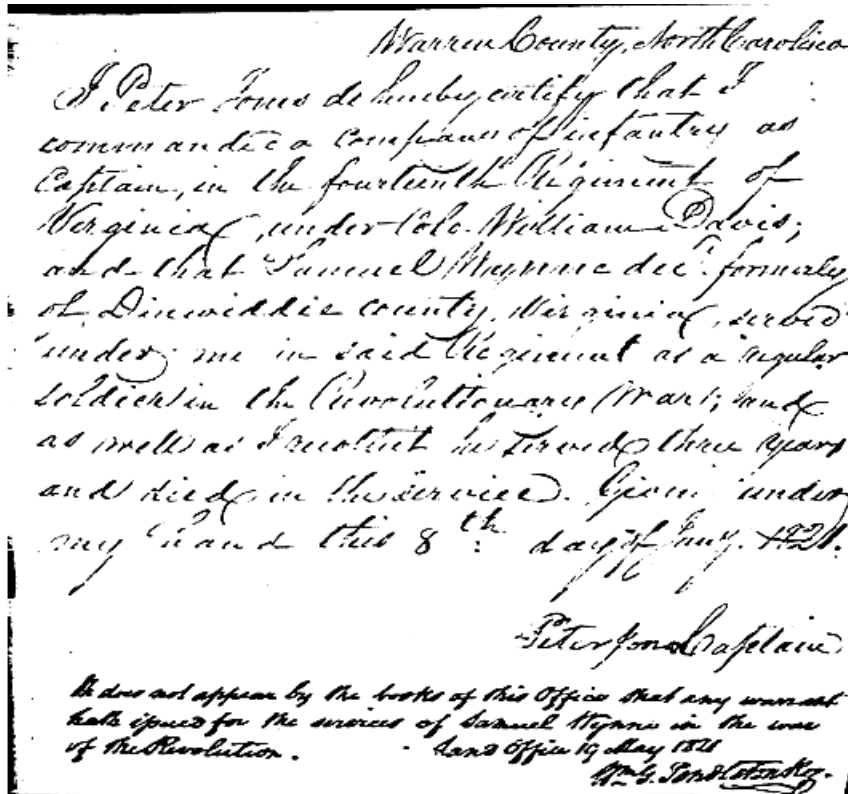 Warren County, North Carolina
I Peter Jones do hereby certify that I
commanded a company of infantry as
Captain, in the fourteenth Regiment of
Virginia, under Colo. William Davis;
and that Samuel Wynne decd. formerly
of Dinwiddie county, Virginia, served
under me in said Regiment as a regular
soldier in the Revolutionary War; and
as well as I recollect he served three years
and died in the service. Given under
my hand this 8th day of Jany. 1821.
Peter Jones Captain
It does not appear by the books of this Office that any warrant
hath issued for the services of Samuel Wynne in the war
of the Revolution. Land Office 19 May 1821
Wm. G. Pendleton Reg.